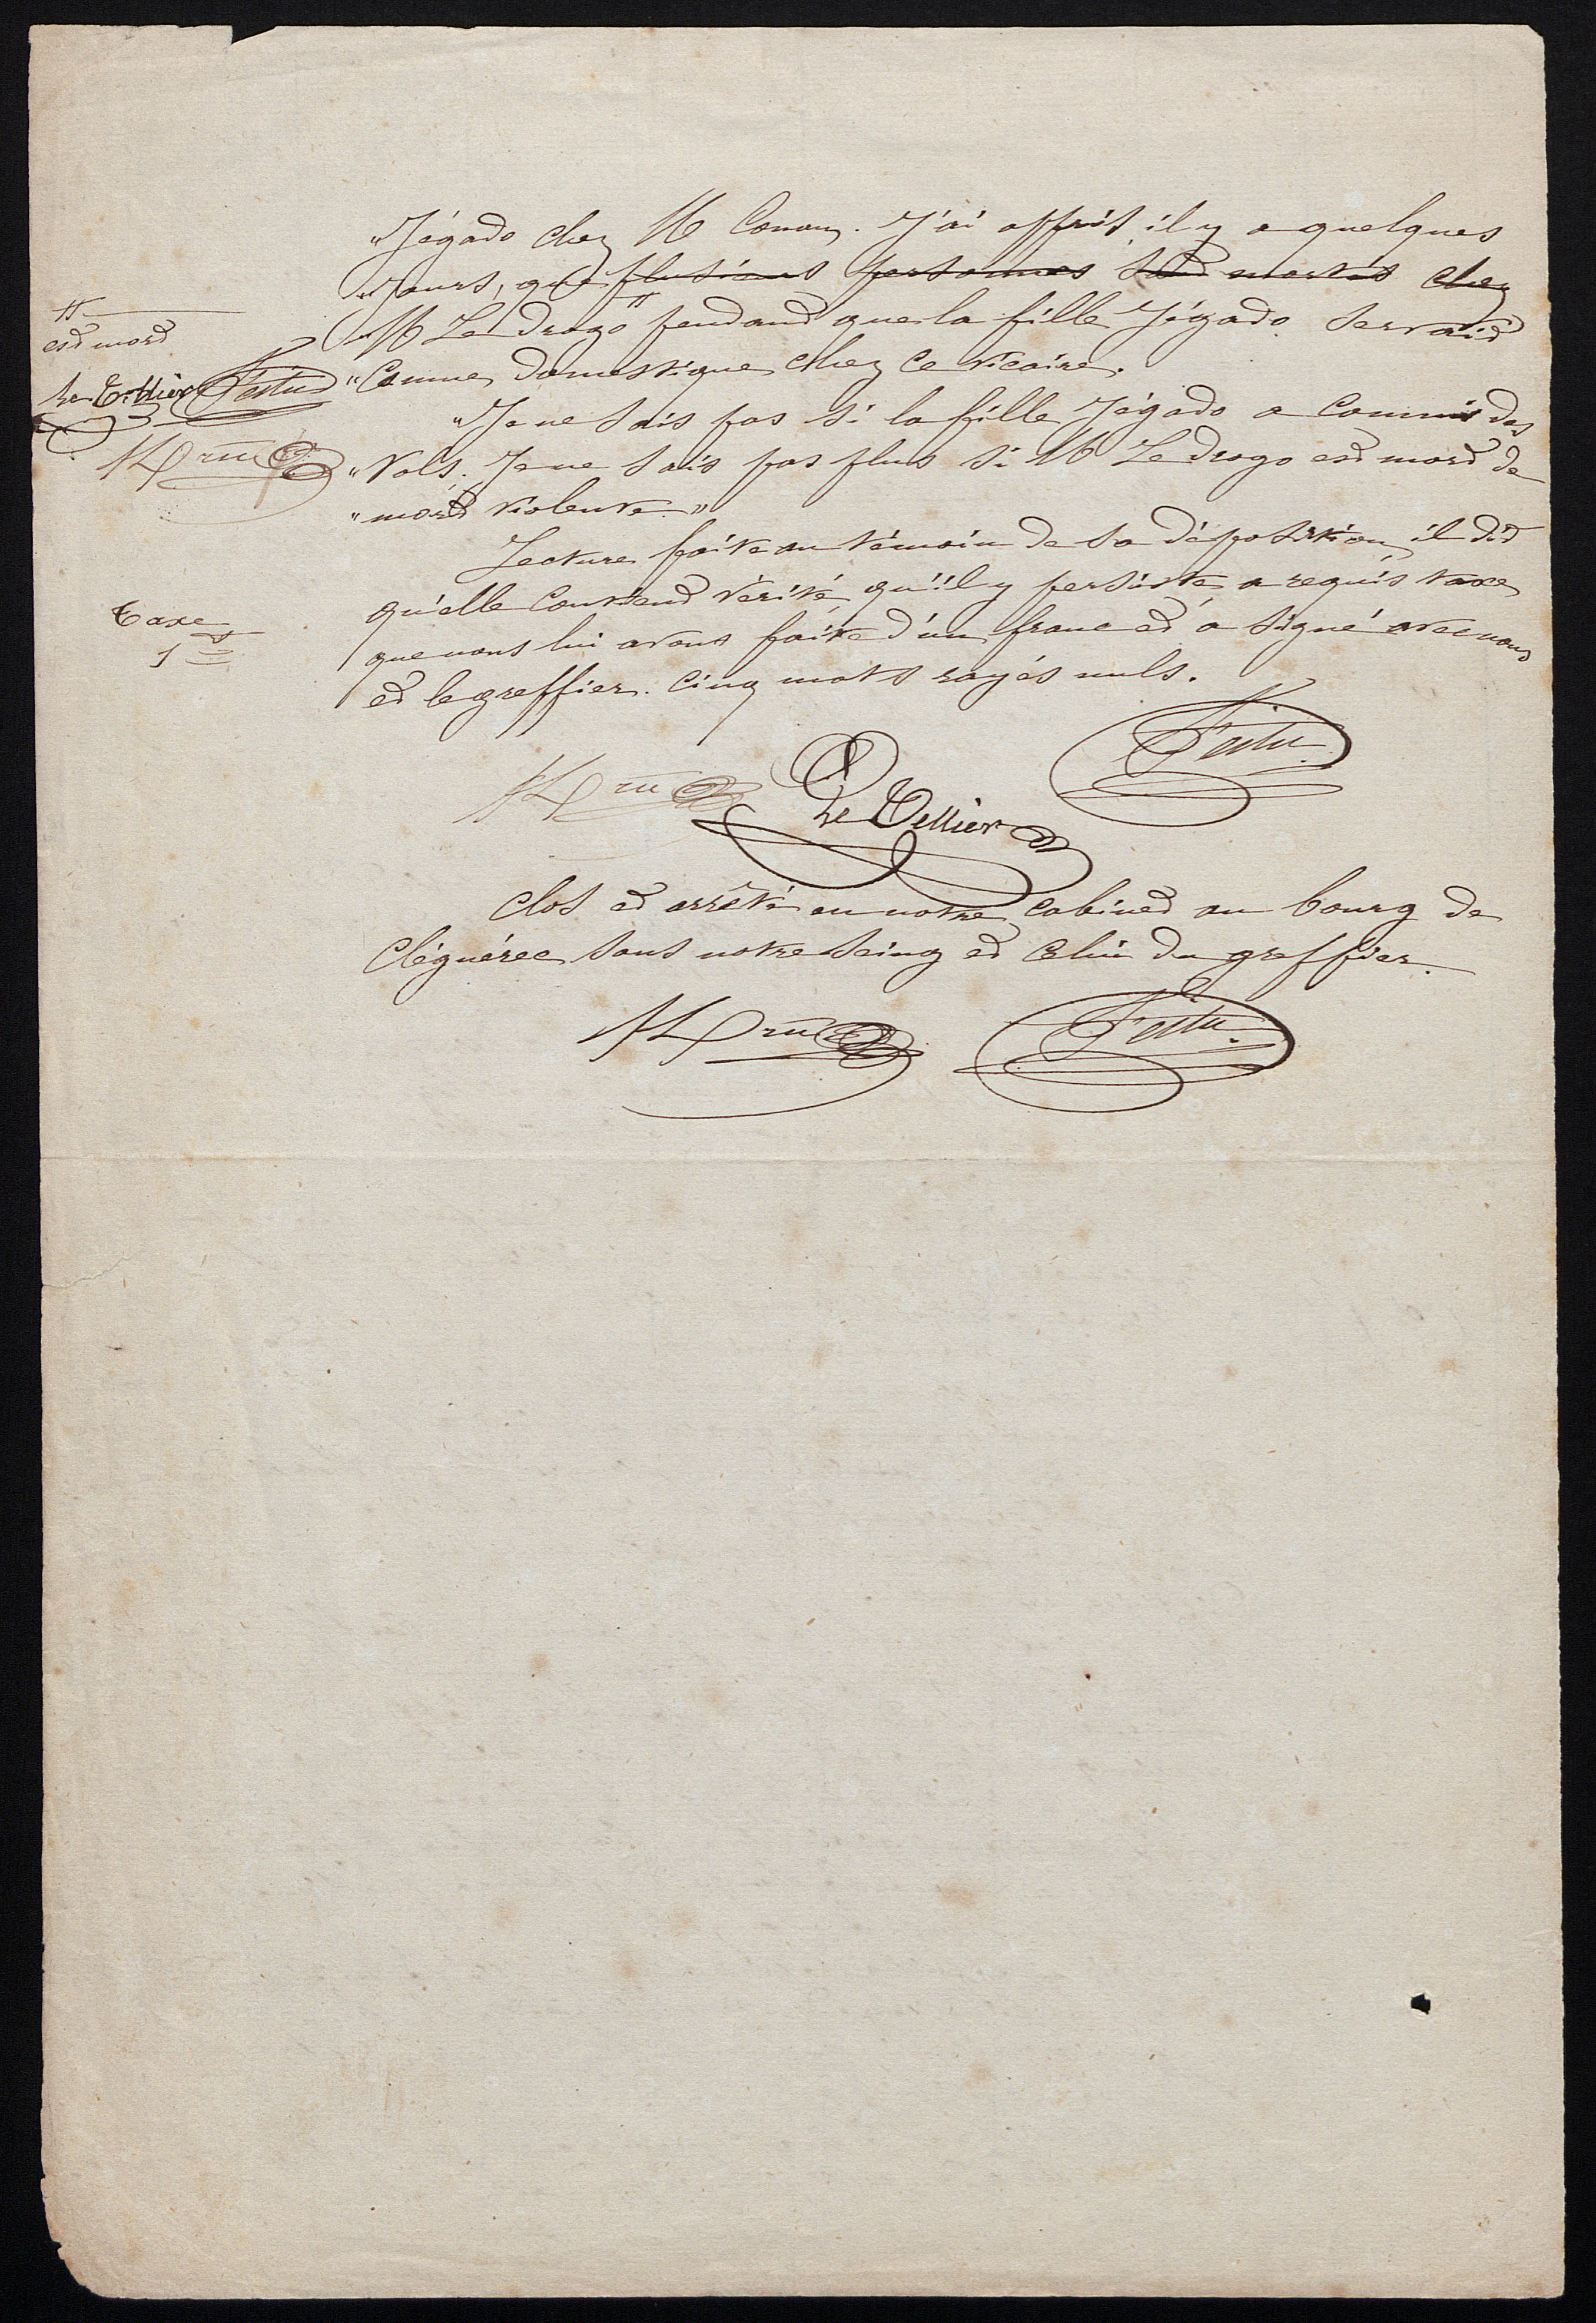 "Jégado chez M Conan. J'ai appris, il y a quelques
"jours, que plusieurs personnes sont mortes chez
"M Le Drogo # pendant que la fille Jégado servait
"comme domestique chez ce vicaire.
#
est mort
Le Tellier Festu
"Je ne sais pas si la fille Jégado a commis des
"vols. Je ne sais pas plus si M Le Drogo est mort de
"mort violente."
Lecture faite au témoin de sa déposition, il dit
qu'elle contient vérité, qu'il y persiste, a requis taxe
que nous lui avons faite d'un franc et a signé avec nous
et le greffier. Cinq mots rayés nuls.
Taxe
1 f
Festu
Le Tellier
Clos et arrêté en notre cabinet au bourg de
Cléguérec sous notre seing et celui du greffier.
Festu